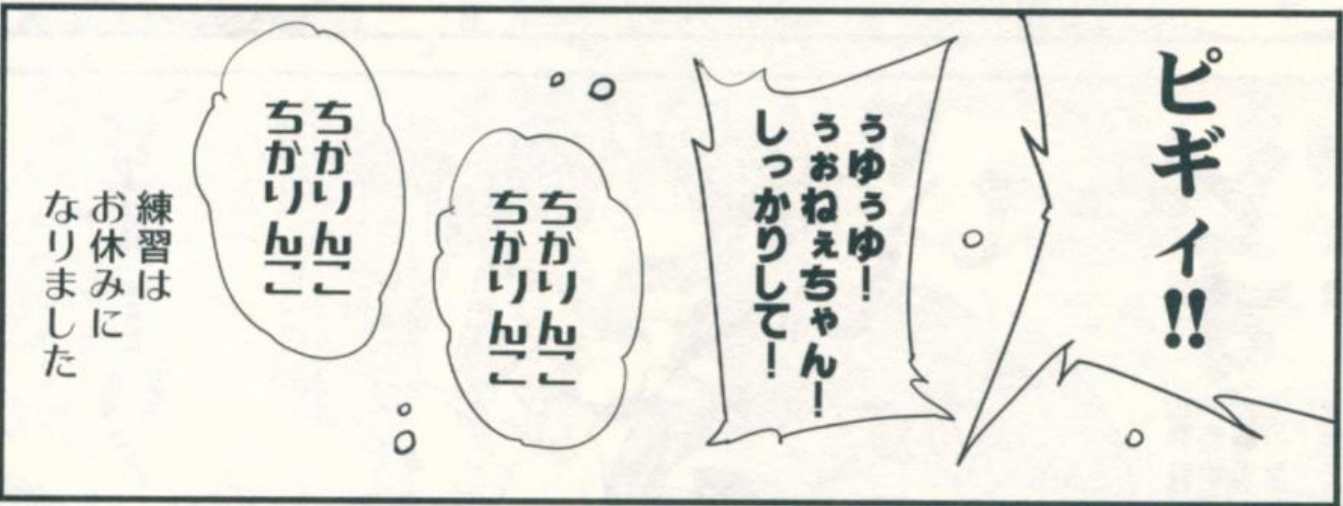 ピギィ!!
ぅゆぅゆ!
ぅぉねぇちゃん!
しっかりして!
ちかりんこ
ちかりんこ
ちかりんこ
ちかりんこ
練習は
お休みに
なりました